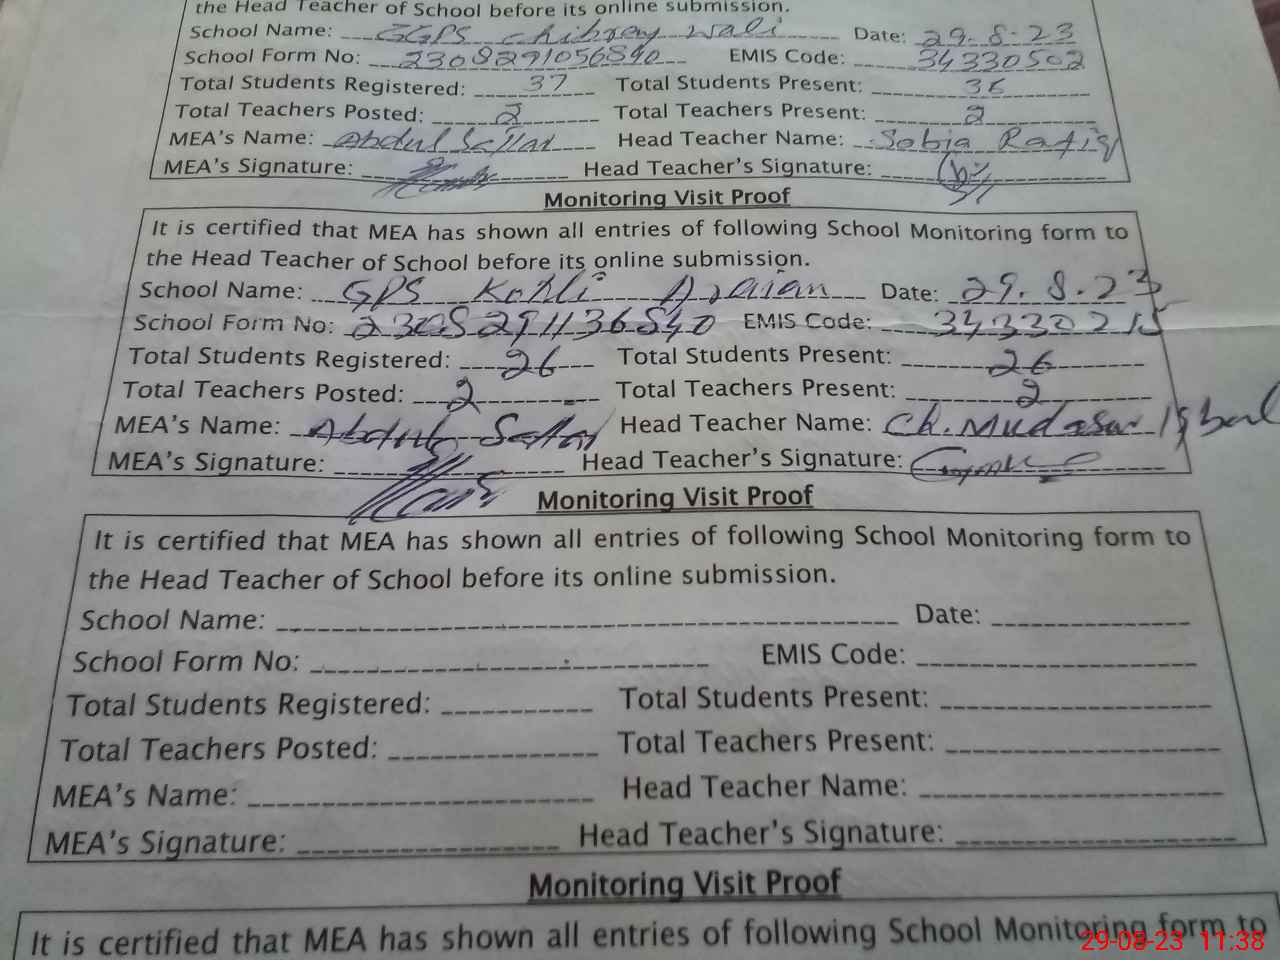 the Head Teacher of School before its online submission.
School Name: GGPS chibrey wali Date: 29.8.23
School Form No: 2308291056840 EMIS Code: 34330502
Total Students Registered: 37 Total Students Present: 35
Total Teachers Posted: 2 Total Teachers Present: 2
MEA's Name: Abdul Sattar Head Teacher Name: Sobia Rafiq
MEA's Signature: Head Teacher's Signature:
Monitoring Visit Proof
It is certified that MEA has shown all entries of following School Monitoring form to
the Head Teacher of School before its online submission.
School Name: GPS Kohli Araian Date: 29.8.23
School Form No: 2308291136840 EMIS Code: 34330215
Total Students Registered: 26 Total Students Present: 26
Total Teachers Posted: 2 Total Teachers Present: 2
MEA's Name: Abdul Sattar Head Teacher Name: Ch. Mudasar Iqbal
MEA's Signature: Head Teacher's Signature:
Monitoring Visit Proof
It is certified that MEA has shown all entries of following School Monitoring form to
the Head Teacher of School before its online submission.
School Name: Date:
School Form No: EMIS Code:
Total Students Registered: Total Students Present:
Total Teachers Posted: Total Teachers Present:
MEA's Name: Head Teacher Name:
MEA's Signature: Head Teacher's Signature:
Monitoring Visit Proof
It is certified that MEA has shown all entries of following School Monitoring form to
29-08-23 11:38